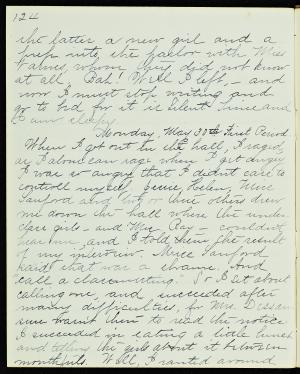 124
the latter a new girl and a
prep into the parlor with Miss
whom they did not know
at all, Bah! Well I left, - and
now I must stop writing and
go to bed for it is Silent Time and
I am sleepy
Monday, May 30th First Period
When I got out in the hall, I raged,
as I alone can rage when I get angry
I was so angry that I didn't care to
controll myself, Helen, Miss
Sanford and two or three others drew
me down the hall where the under-
class girls - and Mrs. Ray - couldn't
hear me, and I told them the result
of my interview. Miss Sanford
said that was a shame, And
call a class meeting. So I set about
calling one, and succeeded after
many difficulties, for Mrs.
want them to read the notice
I succeeded in eating a little lunch
and telling the girls about it between
mouthfuls. Well, I ranted around